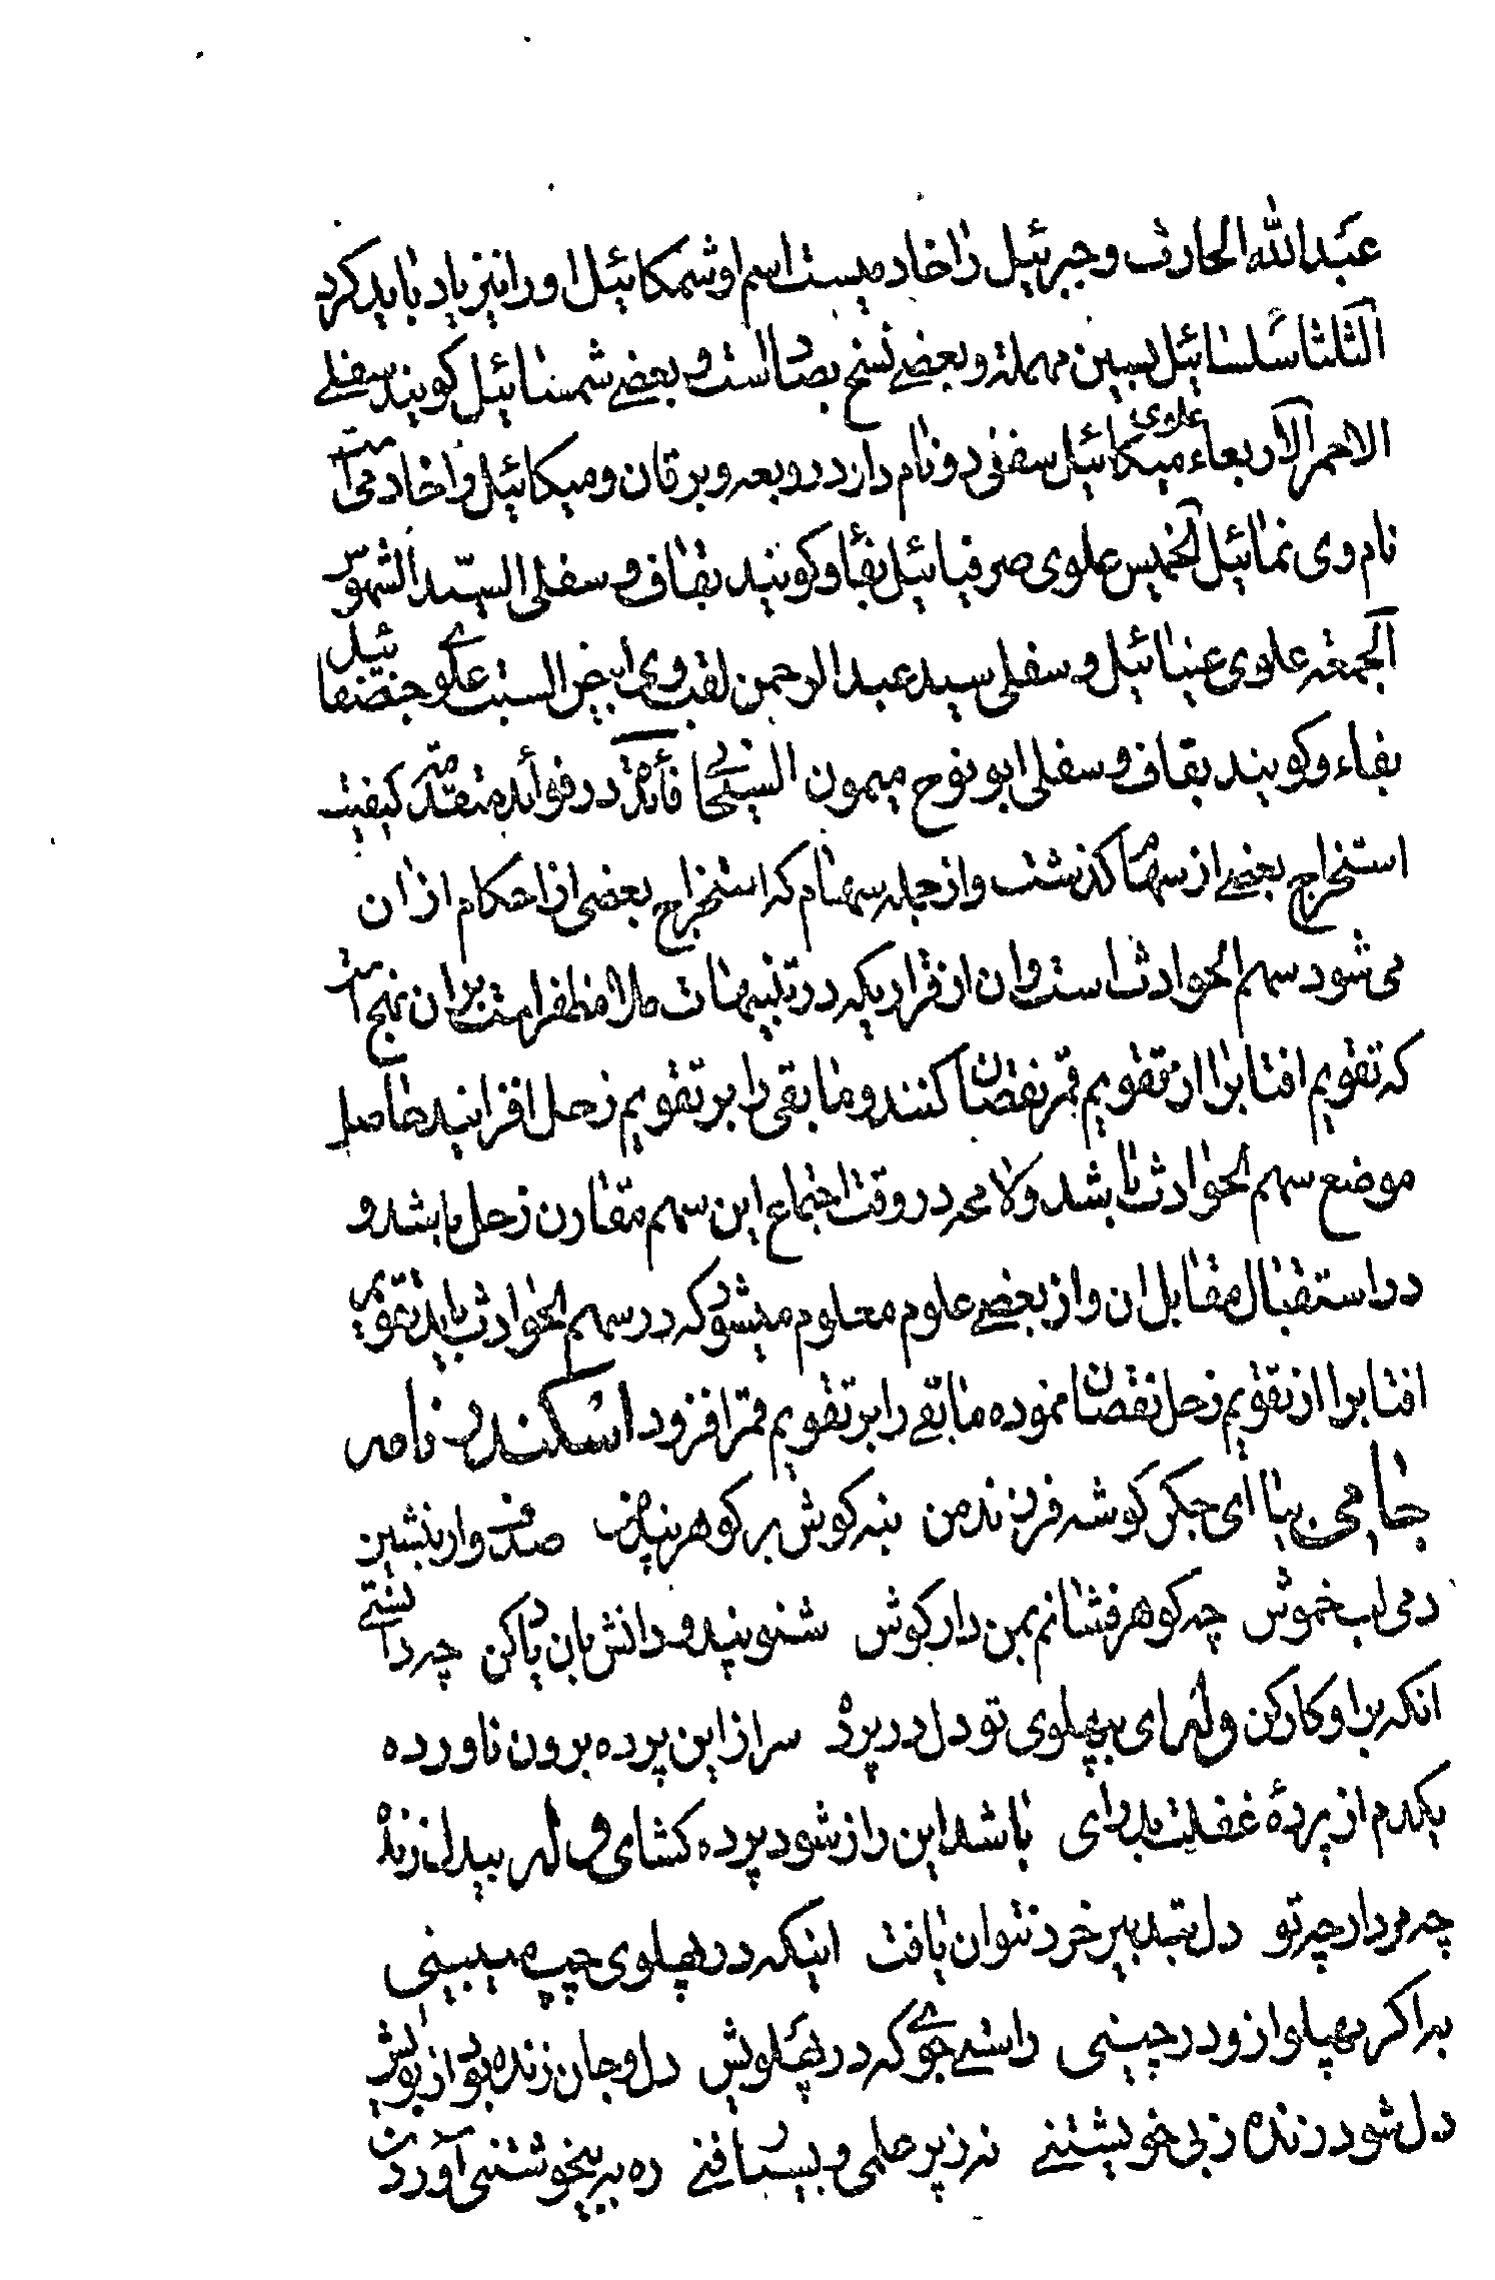 عبدالله الحارث و جبرئیل را خادمیست اسم او شمکائیل او را نیز یاد باید کرد
الثلثا سلسائیل بسین مهملة و بعضے نسخ بصاد است و بعضے شمسائیل کویند سفلے
الاحمر الاربعاء علوی میکائیل سفلی دو نام دارد زوبعه و برقان و میکائیل را خادمی است
نام وی نمائیل الخمیس علوی صرفیائیل بفا و کویند بقاف و سفلی السید الشمهورس
الجمعة علوی عنیائیل و سفلی سید عبدالرحمن لقب وی ابیض السبت علوے جنصفائیل
بفاء و کویند بقاف و سفلی ابو نوح میمون السحابی فائدة در فوائد متقدمه کیفیت
استخراج بعضے از سهام کذشت و از جمله سهام که استخراج بعضی از احکام از ان
می شود سهم الحوادث است و ان از قراریکه در تنبیهات ملا مظفر است بر ان نهج است
که تقویم افتابرا از تقویم قمر نقصان کنند و مابقی را بر تقویم زحل افزایند حاصل
موضع سهم الحوادث باشد و لا محه در وقت اجتماع این سهم مقارن زحل باشد و
در استقبال مقابل ان و از بعضے علوم معلوم میشود که در سهم الحوادث باید تقویم
افتابرا از تقویم زحل نقصان نموده مابقے را بر تقویم قمر افزود اسکندر نامه
جامی بیا ای جکر کوشه فرزند من بنه کوش بر کوهر پند من صدف وار بنشین
دمی لب خموش چه کوهر فشانم بمن دار کوش شنو پند و دانش بان یار کن چه دانستے
انکه برا و کار کن وله ای بپهلوی تو دل در پرده سر از این پرده برون ناورده
یکدم از پردهٔ غفلت بدرای باشد این راز شود پرده کشای و له بیدل زنده
چه مردار چه تو دل بتدبیر خرد نتوان یافت اینکه در پهلوی چپ میبینی
به اکر پهلو از و در چینی راستے جوے که در پهلویش دل و جان زنده بود از بویش
دل شود زنده ز بی خویشتنے نه ز پر علمی و بسیار فنے ره به بیخویشتنی آوردن